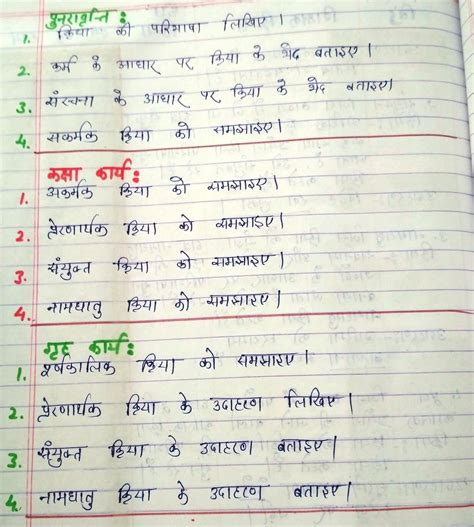 पुनरावृत्ति :
1. क्रिया की परिभाषा लिखिए।
2. कर्म के आधार पर क्रिया के भेद बताइए।
3. संरचना के आधार पर क्रिया के भेद बताइए।
4. सकर्मक क्रिया को समझाइए।
कक्षा कार्य :
1. अकर्मक क्रिया को समझाइए।
2. प्रेरणार्थक क्रिया को समझाइए।
3. संयुक्त क्रिया को समझाइए।
4. नामधातु क्रिया को समझाइए।
गृह कार्य :
1. पूर्वकालिक क्रिया को समझाइए।
2. प्रेरणार्थक क्रिया के उदाहरण लिखिए।
3. संयुक्त क्रिया के उदाहरण बताइए।
4. नामधातु क्रिया के उदाहरण बताइए।